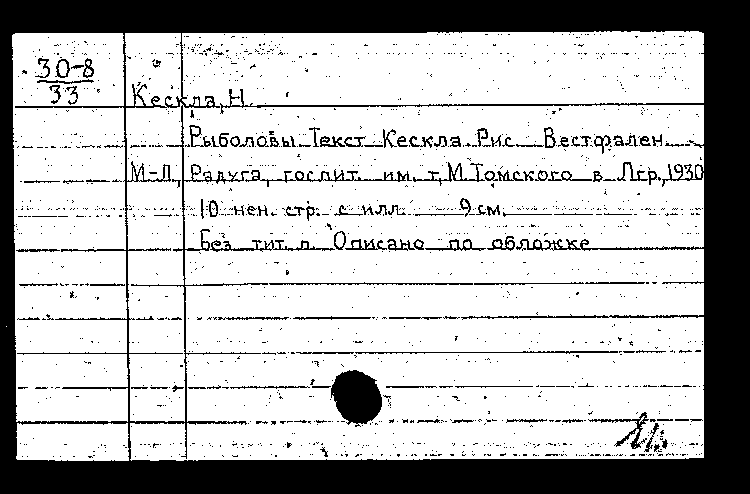 30-8
33
Кескла, Н.
Рыболовы. Текст Кескла. Рис. Вестфален.
М-Л., Радуга, гослит. им. т. М. Томского в Лгр., 1930
10 нен. стр. с илл. 9 см.
Без тит. л. Описано по обложке